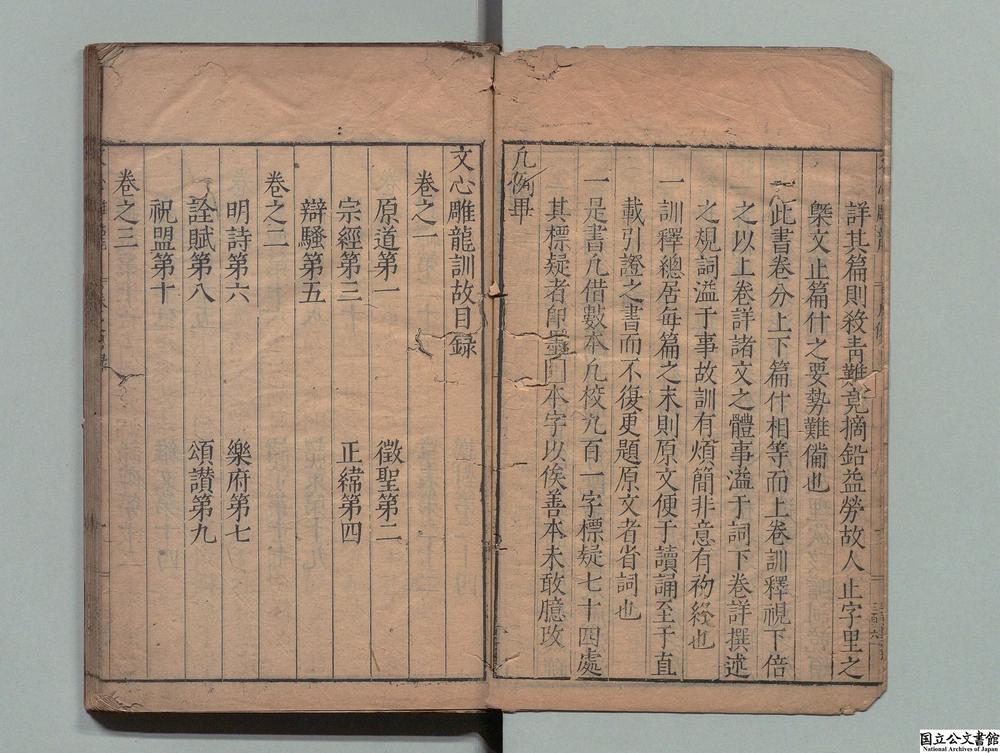 詳其篇則殺青難竟摘鉛益勞故人止字里之
槩文止篇什之要勢難備也
一此書卷分上下篇什相等而上卷訓釋視下倍
之以上卷詳諸文之體事溢于詞下卷詳撰述
之規詞溢于事故訓有煩簡非意有初終也
一訓釋總居每篇之末則原文便于讀誦至于直
載引證之書而不復更題原文者省詞也
一是書凢借數本凢校九百一字標疑七十四處
其標疑者即墨囗本字以俟善本未敢臆攺
凢例畢
文心雕龍訓故目録
卷之一
原道第一 徵聖第二
宗經第三 正緯第四
辯騷第五
卷之二
明詩第六 樂府第七
詮賦第八 頌讃第九
祝盟第十
卷之三
国立公文書館
National Archives of Japan